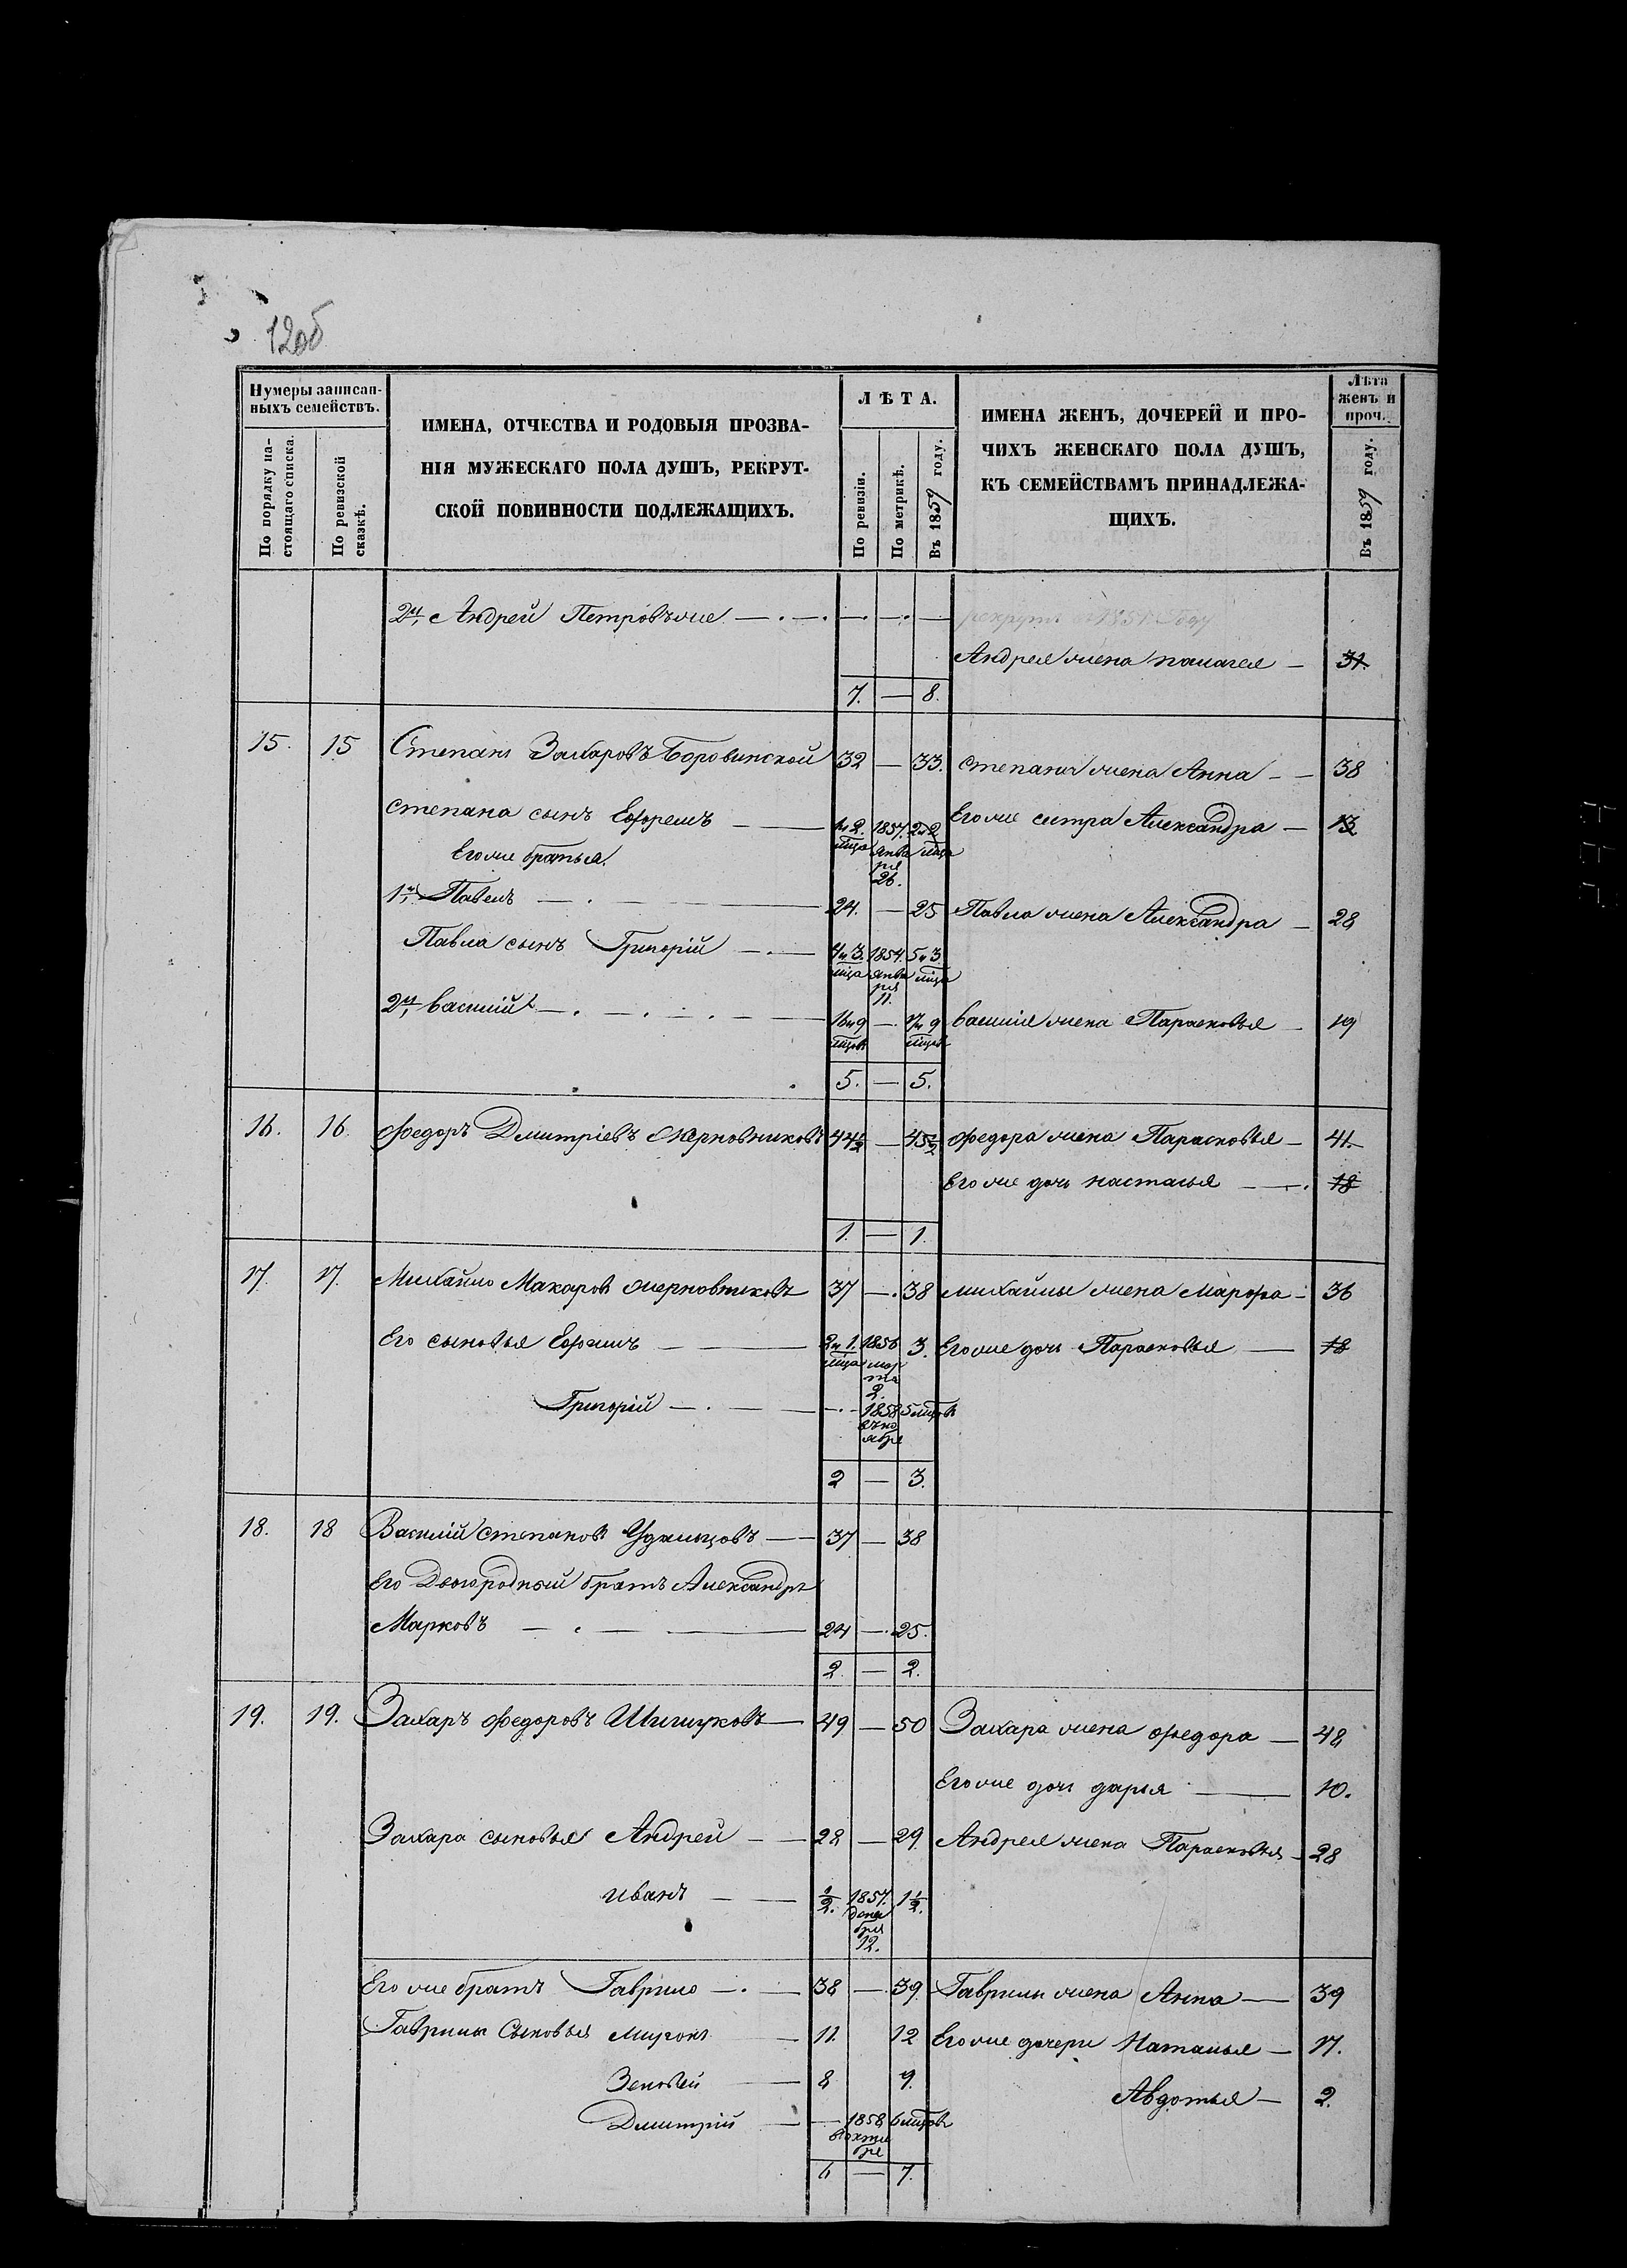 12об
Нумеры записан-
ныхъ семействъ.
По порядку на-
стоящаго списка.
По ревизской
сказкѣ.
ИМЕНА, ОТЧЕСТВА И РОДОВЫЯ ПРОЗВА-
НІЯ МУЖЕСКАГО ПОЛА ДУШЪ, РЕКРУТ-
СКОЙ ПОВИННОСТИ ПОДЛЕЖАЩИХЪ.
ЛѢТА.
По ревизіи.
По метрикѣ.
Въ 1859 году.
ИМЕНА ЖЕНЪ, ДОЧЕРЕЙ И ПРО-
ЧИХЪ ЖЕНСКАГО ПОЛА ДУШЪ,
КЪ СЕМЕЙСТВАМЪ ПРИНАДЛЕЖА-
ЩИХЪ.
Лѣта
женъ и
проч.
Въ 1859 году.
2й, Андрей Петровъ же — — —
Андрея жена 31.
7. — 8.
15. 15 Степанъ Захаровъ Боровинской 32 — 33. Степана жена Анна — 38
Степана сынъ Ефремъ — 1 и 2. мѣца 1857. января 26. 2 и 2 мѣца Его же сестра Александра — 13
Его же братья.
1й, Павелъ — 24. — 25 Павла жена Александра — 28
Павла сынъ Григорій — 4 и 3. мѣца 1854. января 11. 5 и 3. мѣца
2й, Василій — 16 и 9 мѣцовъ — 17 и 9 мѣцовъ Василія жена Парасковья — 19
5. — 5.
16. 16 Федоръ Дмитріевъ Жерновниковъ 44½ — 45½ Федора жена Парасковья — 41.
Его же дочь Настасья — 18
1. — 1.
17. 17. Михайло Макаровъ Жерновниковъ 37 — 38 Михайлы жена Марфа — 36
Его сыновья Ефимъ — 2 и 1. мѣца 1856 марта 2. 3. Его же дочь Парасковья — 18
Григорій — — 1858 въ ноябре 5 мѣцовъ
2 — 3.
18. 18 Василій Степановъ — 37 — 38
Его Двоюродный братъ Александръ
Марковъ — 24 — 25.
2. — 2.
19. 19. Захаръ Федоровъ Шишуковъ — 49 — 50 Захара жена Федора — 48
Его же дочь Дарья — 10.
Захара сыновья Андрей — 28 — 29. Андрея жена Парасковья — 28
Иванъ — ½. 1857. декабря 12. 1½.
Его же братъ Гаврило — 38 — 39. Гаврилы жена Анна — 39
Гаврилы Сыновья Миронъ — 11. 12 Его же дочери Наталья — 17.
Зеновей — 8 9. Авдотья — 2.
Дмитрій — — 1858 въ октябре 6 мѣцовъ
6 — 7.